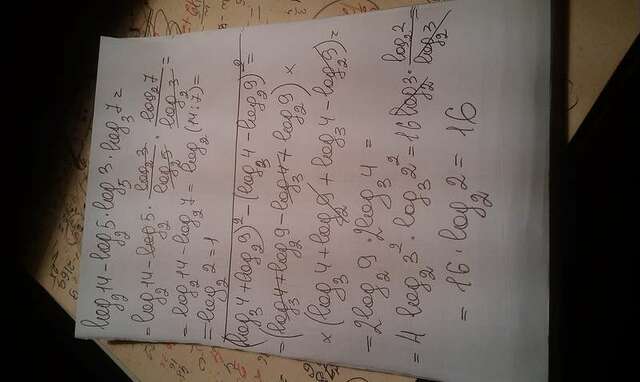 log₂14-log₂5·log₅3·log₃7=
=log₂14-log₂5·log₂3/log₂5·log₂7/log₂3=
=log₂14-log₂7=log₂(14:7)=
=log₂2=1
(log₃4+log₂9)²-(log₃4-log₂9)²=
=(log₃4+log₂9-log₃4+log₂9)×
×(log₃4+log₂9+log₃4-log₂9)=
=2log₂9·2log₃4=
=4log₂3²·log₃2²=16log₂3·log₂2/log₂3=
=16·log₂2=16